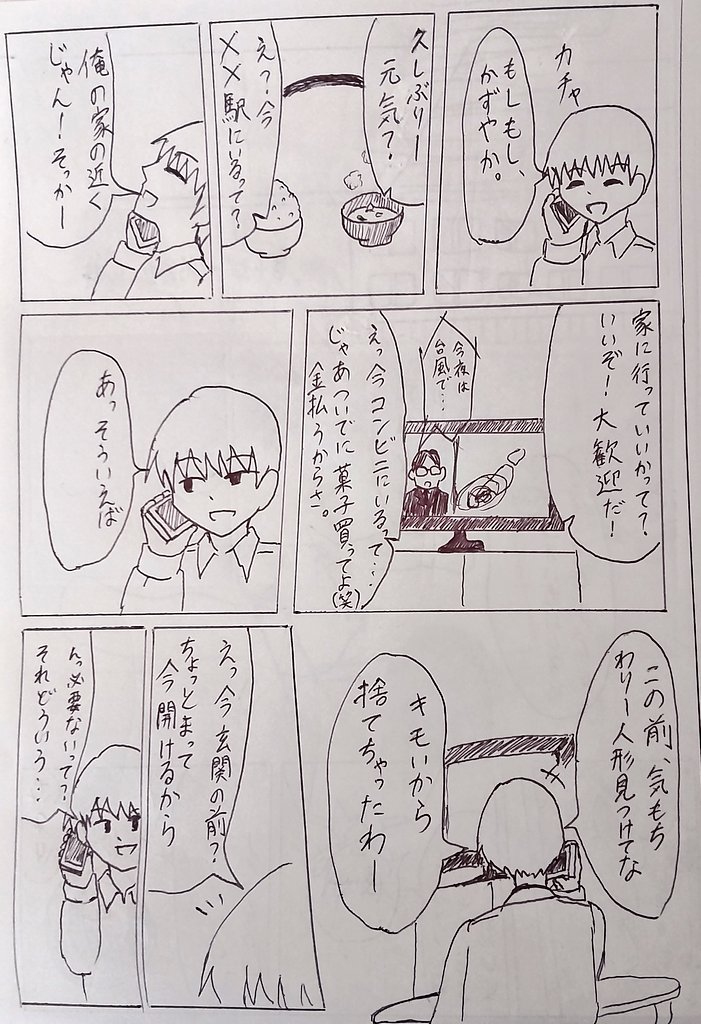 カチャ
もしもし、
かずやか。
久しぶりー
元気?
えっ、今
××駅にいるって?
俺の家の近く
じゃん!そっかー
家に行っていいかって?
いいぞ!大歓迎だ!
今夜は
台風で…
えっ今コンビニにいるって…
じゃあついでに菓子買ってよ(笑)
金払うからさ。
あっそういえば
この前、気もち
わりー人形見つけてな
キモいから
捨てちゃったわー
えっ今玄関の前?
ちょっとまって
今開けるから
んっ必要ないって?
それどういう…